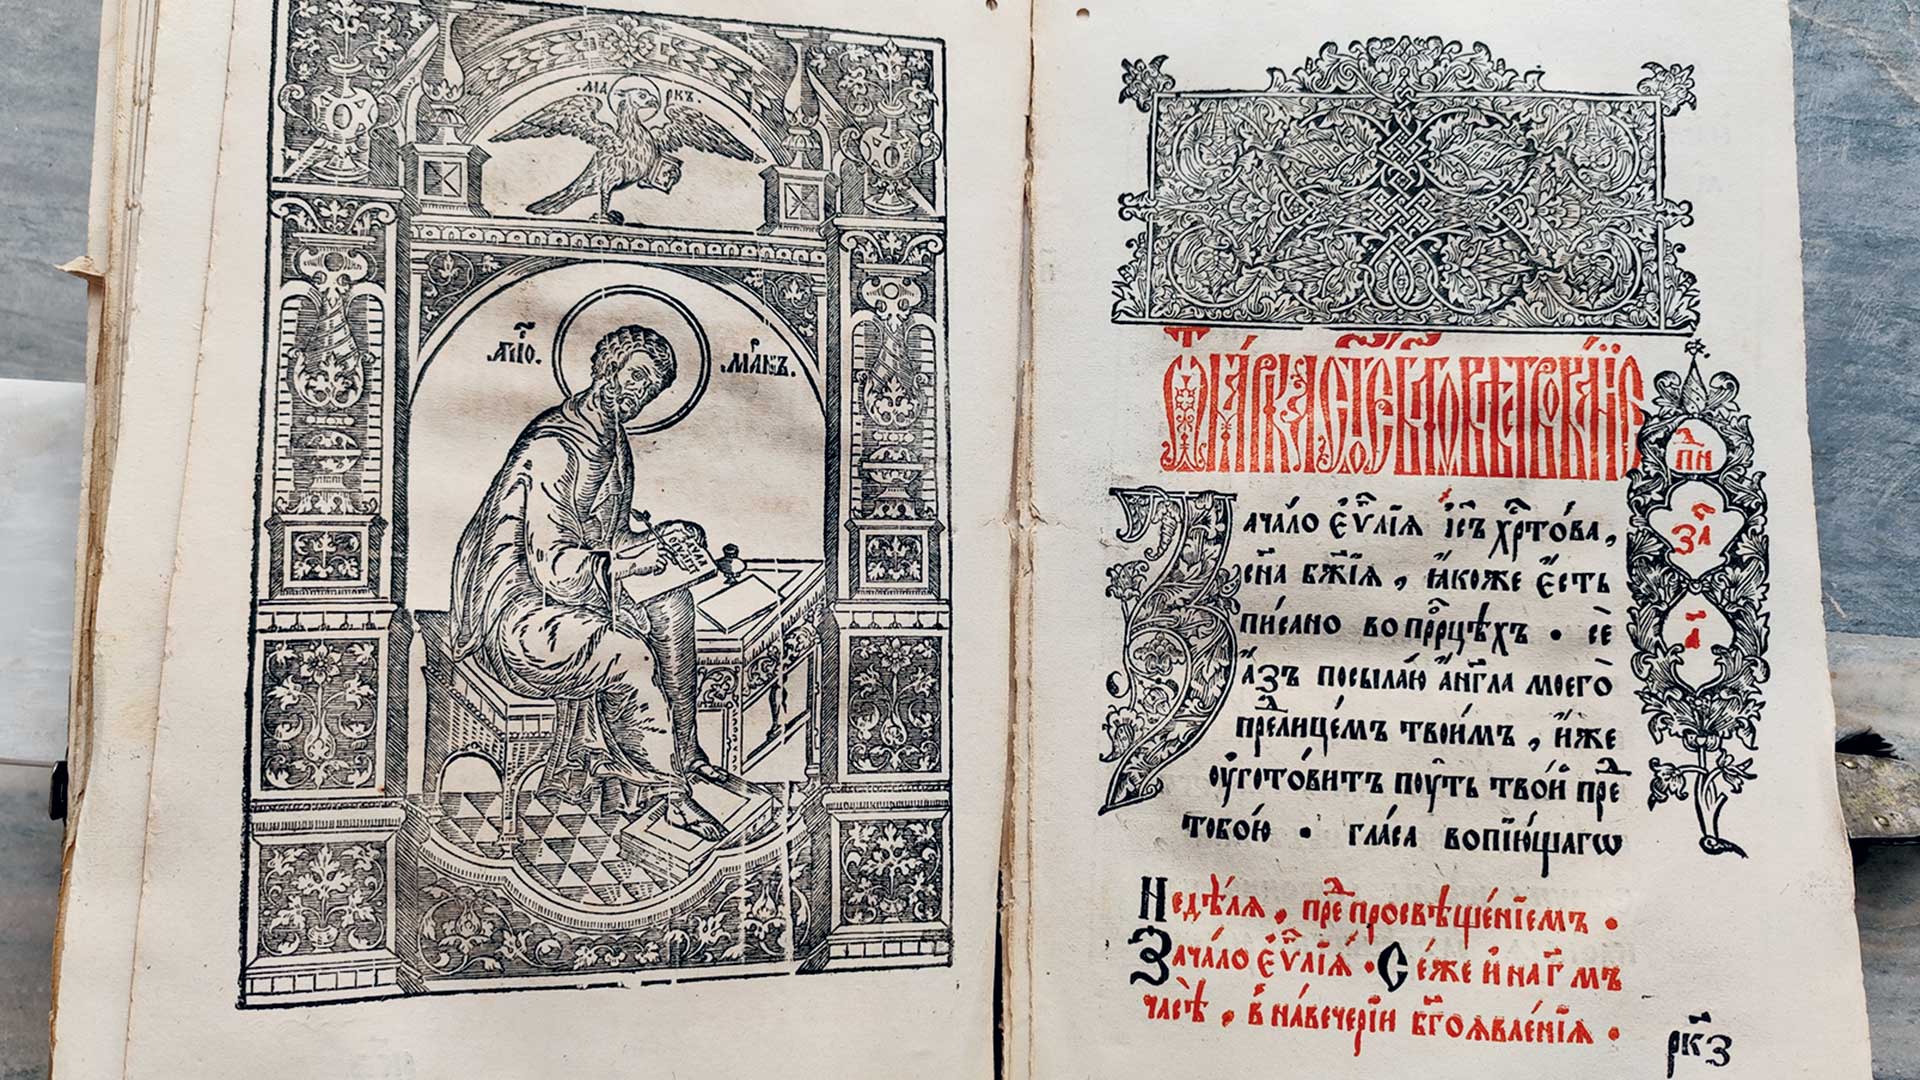 .МА РКЪ.
АПО҃. МАРКЪ.
Ѿ МА́РКА СТ҃Ое БЛ҃ГОВѢСТВОВА́НЇЕ
дп҃и
За҃
а҃
Нача́ло є҆ѵⷢ҇лїѧ і҆с҃ъ хрⷭ҇то́ва,
сн҃а бж҃їѧ, ꙗ҆́коже є҆́сть
пи́сано во прⷪ҇рцѣхъ. сѐ
а҆́зъ посыла́ю а҆́нг҃ла моего̀
преⷣлице́мъ твои́мъ, и҆́же
ѹ҆гото́витъ пѹ́ть тво́й преⷣ
тобо́ю. гла́са вопїю́щагѡ
Недѣ́лѧ, преⷣ просвѣще́нїемъ.
Зача́ло є҆ѵⷢ҇лїѧ а҃. Се́же и҆ на г҃мъ
часѣ̀, в҆ наве́черїи бг҃оѧвле́нїѧ.
рк҃з